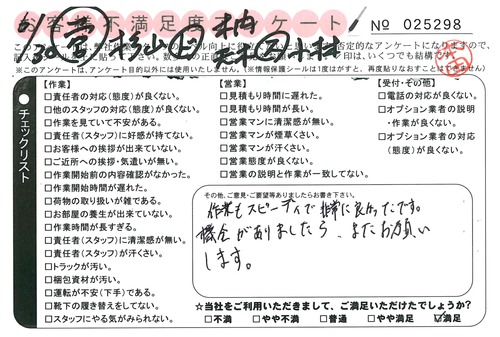 お客様不満足度アンケート
№ 025298
チェックリスト
【作業】
□責任者の対応(態度)が良くない。
□他のスタッフの対応(態度)が良くない。
□作業を見ていて不安がある。
□責任者(スタッフ)に好感が持てない。
□お客様への挨拶が出来ていない。
□ご近所への挨拶・気遣いが無い。
□作業開始前の内容確認がなかった。
□作業開始時間が遅れた。
□荷物の取り扱いが雑である。
□お部屋の養生が出来ていない。
□作業時間が長すぎる。
□責任者(スタッフ)に清潔感が無い。
□責任者(スタッフ)が汗くさい。
□トラックが汚い。
□梱包資材が汚い。
□運転が不安(下手)である。
□靴下の履き替えをしてない。
□スタッフにやる気がみられない。
【営業】
□見積もり時間に遅れた。
□見積もり時間が長い。
□営業マンに清潔感が無い。
□営業マンが煙草くさい。
□営業マンが汗くさい。
□営業態度が良くない。
□営業の説明と作業が一致してない。
【受付・その他】
□電話の対応が良くない。
□オプション業者の説明・作業が良くない。
□オプション業者の対応(態度)が良くない。
その他、ご意見・ご要望等ありましたらお書き下さい。
作業もスピーディで非常に良かったです。
機会がありましたら、またお願い
します。
☆当社をご利用いただきまして、ご満足いただけたでしょうか?
□不満 □やや不満 □普通 □やや満足 ☑満足